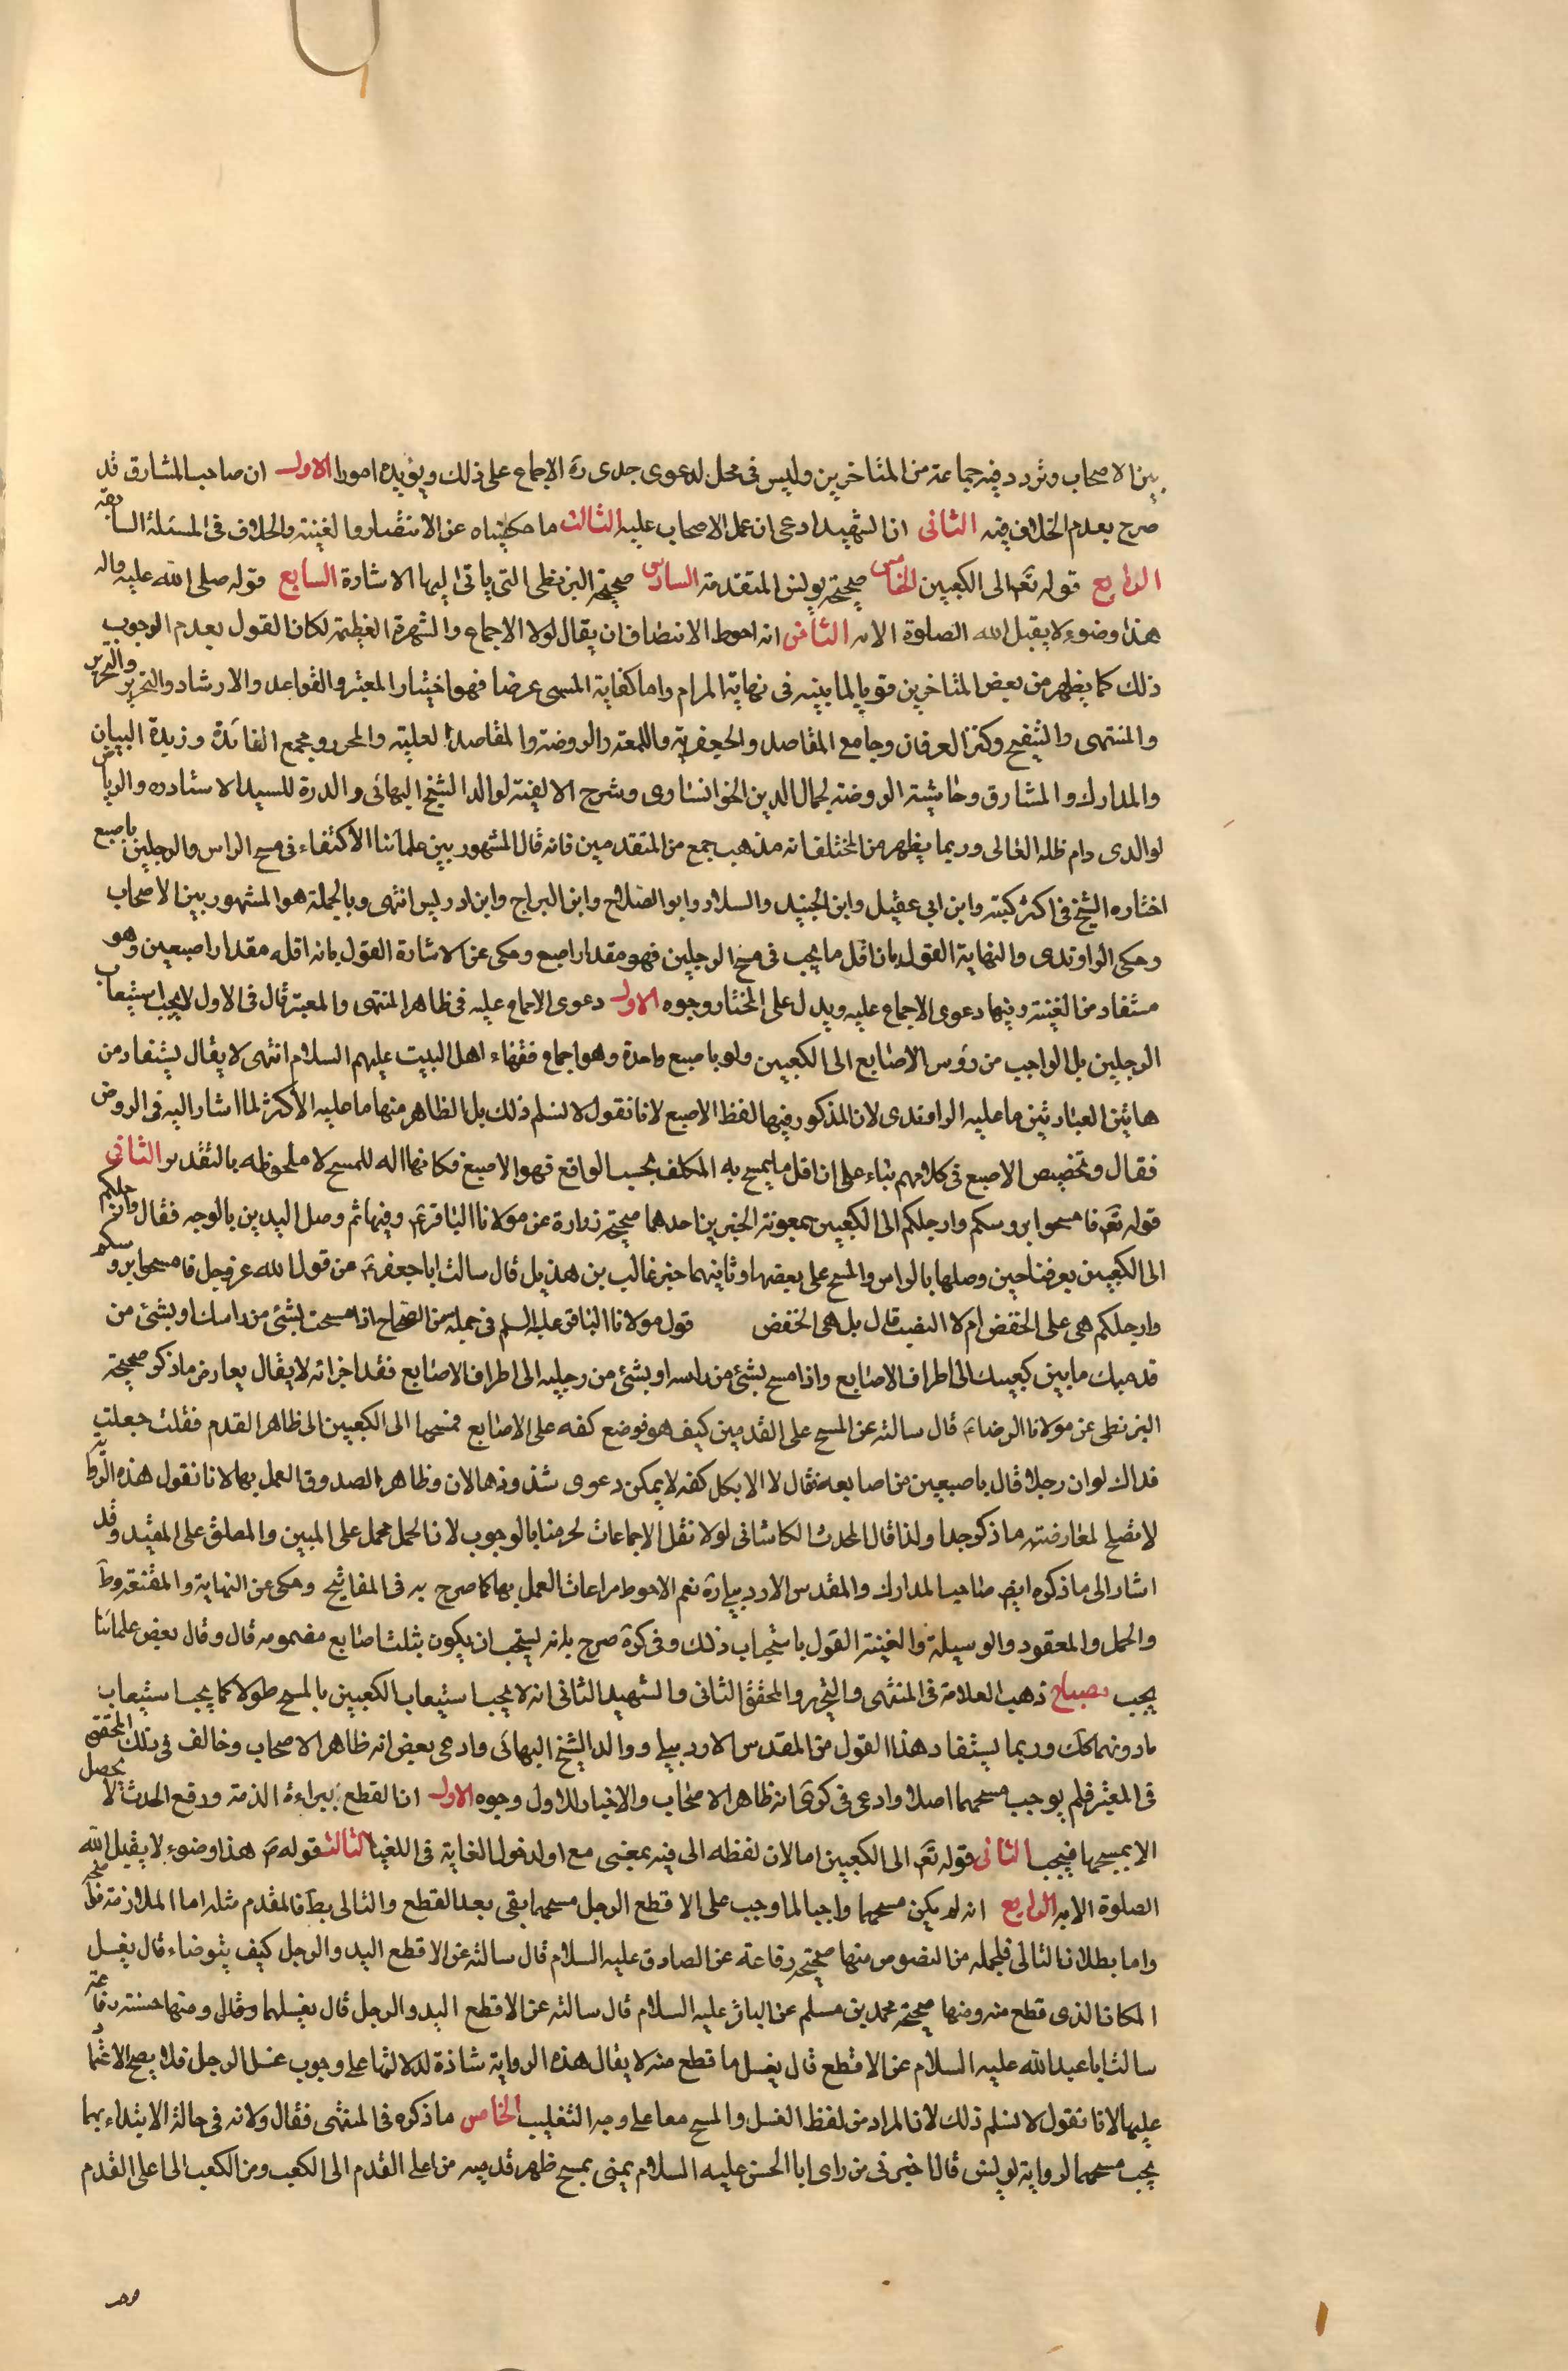 بين الاصحاب وتردد فيه جماعة من المتاخرين وليس فى محل لدعوى جدى ره الاجماع على ذلك ويؤيده امور الاول ان صاحب المشارق قد
صرح بعدم الخلاف فيه الثانى ان الشهيد ادعى ان عمل الاصحاب عليه الثالث ما حكيناه عن الانتصار والغنية والخلاف فى المسئلة السابقة
الرابع قوله تعم الى الكعبين الخامس صحيحة يونس المتقدمة السادس صحيحة البزنطى التى ياتى اليها الاشارة السابع قوله صلى الله عليه واله
هذا وضوء لا يقبل الله الصلوة الا به الثامن انه احوط الانصاف ان يقال لولا الاجماع والشهرة العظيمة لكان القول بعدم الوجوب
ذلك كما يظهر من بعض المتاخرين قويا لما بينه فى نهاية المرام واما كفاية المسمى عرضا فهو اختيار المعتبر والقواعد والارشاد والتحرير والتحرير
والمنتهى والتنقيح وكنز العرفان وجامع المقاصد والجعفرية واللمعة والروضة والمقاصد العلية والمحرر ومجمع الفائدة وزبدة البيان
والمدارك والمشارق وحاشية الروضة لجمال الدين الخوانسارى وشرح الالفية لوالد الشيخ البهائى والدرة للسيد الاستاد ره والرياض
لوالدى دام ظله العالى وربما يظهر من المختلف انه مذهب جمع من المتقدمين فانه قال المشهور بين علمائنا الاكتفاء فى مسح الراس والرجلين باصبع
اختاره الشيخ فى اكثر كتبه وابن ابى عقيل وابن الجنيد والسلار وابو الصلاح وابن البراج وابن ادريس انتهى وبالجملة هو المشهور بين الاصحاب
وحكى الراوندى والنهاية القول بان اقل ما يجب فى مسح الرجلين فهو مقدار اصبع وحكى عن الاشارة القول بانه اقله مقدار اصبعين وهو
مستفاد من الغنية وفيها دعوى الاجماع عليه ويدل على المختار وجوه الاول دعوى الاجماع عليه فى ظاهر المنتهى والمعتبر قال فى الاول لا يجب استيعاب
الرجلين بل الواجب من رؤس الاصابع الى الكعبين ولو باصبع واحدة وهو اجماع فقهاء اهل البيت عليهم السلام انتهى لا يقال يستفاد من
هاتين العبارتين ما عليه الراوندى لان المذكور فيها لفظ الاصبع لانا نقول لا نسلم ذلك بل الظاهر منها ما عليه الاكثر لما اشار اليه فى الروض
فقال وتخصيص الاصبع فى كلامهم بناء على ان اقل ما يمسح به المكلف بحسب الواقع فهو الاصبع فكانها اله للمسح لا ملحوظه بالتقدير الثانى
قوله تعم فامسحوا بروسكم وارجلكم الى الكعبين بمعونة الخبرين احدهما صحيحة زرارة عن مولانا الباقر عم وفيها ثم وصل اليدين بالوجه فقال وارجلكم
الى الكعبين يعرفنا حين وصلها بالراس والمسح على بعضها وثانيهما خبر غالب بن هذيل قال سالت ابا جعفر عم عن قول الله عز وجل فامسحوا بروسكم
وارجلكم هى على الخفض ام لا النصب قال بل هى الخفض قول مولانا الباقر عليه السلم فى جملة من الصحاح اذا مسحت بشئ من راسك او بشئ من
قدميك ما بين كعبيك الى اطراف الاصابع واذا مسح بشئ من راسه او بشئ من رجليه الى اطراف الاصابع فقد اجزاته لا يقال يعارض ما ذكر صحيحة
البزنطى عن مولانا الرضا ع قال سالته عن المسح على القدمين كيف هو فوضع كفه على الاصابع فمسحها الى الكعبين الى ظاهر القدم فقلت جعلت
فداك لو ان رجلا قال باصبعين من اصابعه فقال لا الا بكل كفه لا يمكن دعوى شذوذها لان وظاهر الصدوق العمل بها لانا نقول هذه الرواية
لا تصلح لمعارضته ما ذكر جدا ولذا قال المحدث الكاشانى لولا نقل الاجماعات لحرمنا بالوجوب لانا لحمل مجمل على المبين والمطلق على المقيد وقد
اشار الى ما ذكره ايض صاحب المدارك والمقدس الاردبيلى ره نعم الاحوط مراعات العمل بها كما صرح به فى المفاتيح وحكى عن النهاية والمقنعة وط
والجمل والعقود والوسيلة والغنية القول باستحباب ذلك وفى كرة صرح بانه يستحب ان يكون بثلث اصابع مضمومه قال وقال بعض علمائنا
يجب مصباح ذهب العلامة فى المنتهى والتحرير والمحقق الثانى والشهيد الثانى انه لا يجب استيعاب الكعبين بالمسح طولا كما يجب استيعاب
ما دونهما كك وربما يستفاد هذا القول من المقدس الاردبيلى ووالد الشيخ البهائى وادعى بعض انه ظاهر الاصحاب وخالف فى ذلك المحقق
فى المعتبر فلم يوجب مسحهما اصلا وادعى فى كرى انه ظاهر الاصحاب والاخبار للاول وجوه الاول ان القطع ببراءة الذمة ورفع الحدث لا يحصل
الا بمسحها فيجب الثانى قوله تعم الى الكعبين اما لان لفظه الى فيه بمعنى مع او لدخول الغاية فى المغيا الثالث قوله ص هذا وضوء لا يقبل الله
الصلوة الا به الرابع انه لو يكن مسحهما واجبا لما وجب على الاقطع الرجل مسحهما بقى بعد القطع والتالى بط فالمقدم مثله اما الملازمة فظ
واما بطلان التالى فلجمله من النصوص منها صحيحة رفاعة عن الصادق عليه السلام قال سالته عن الاقطع اليد والرجل كيف يتوضاء قال يغسل
المكان الذى قطع منه ومنها صحيحة محمد بن مسلم عن الباقر عليه السلام قال سالته عن الاقطع اليد والرجل قال يغسلهما وقال ومنها حسنة رفاعة
سالت ابا عبد الله عليه السلام عن الاقطع قال يغسل ما قطع منه لا يقال هذه الرواية شاذة لدلالتها على وجوب غسل الرجل فلا يصح الاعتماد
عليها لانا نقول لا نسلم ذلك لان المراد من لفظ الغسل والمسح معا على وجه التغليب الخامس ما ذكره فى المنتهى فقال ولانه فى حالة الابتداء بهما
يجب مسحهما لرواية يونس قال اخبرنى من راى ابا الحسن عليه السلام بمنى يمسح ظهر قدميه من اعلى القدم الى الكعب ومن الكعب الى اعلى القدم